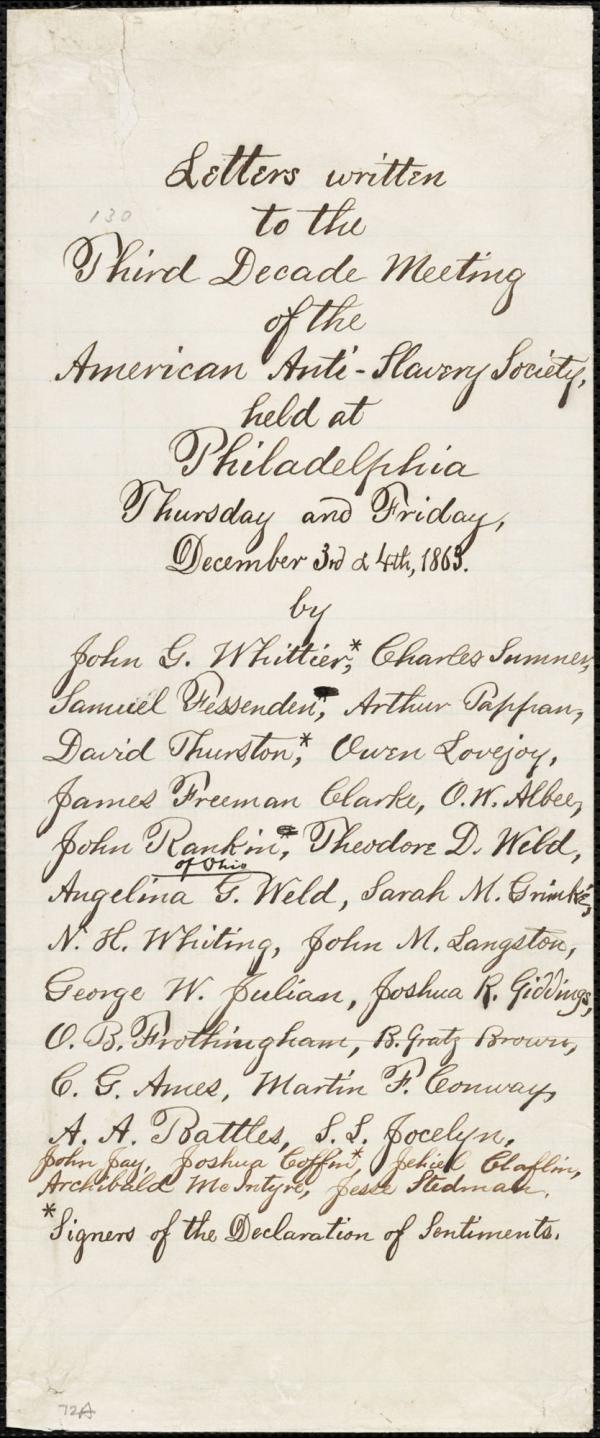 Letters written
130
to the
Third Decade Meeting
of the
American Anti-Slavery Society,
held at
Philadelphia
Thursday and Friday,
December 3rd & 4th, 1863.
by
John G. Whittier,* Charles Sumner,
Samuel Fessenden, Arthur Tappan,
David Thurston,* Owen Lovejoy,
James Freeman Clarke, O. W. Albee,
John Rankin, Theodore D. Weld,
of Ohio
Angelina G. Weld, Sarah M. Grimké,
N. H. Whiting, John M. Langston,
George W. Julian, Joshua R. Giddings,
O. B. Frothingham, B. Gratz Brown,
C. G. Ames, Martin F. Conway,
A. A. Battles, S. S. Jocelyn,
John Jay, Joshua Coffin*, Jehiel Claflin,
Archibald McIntyre, Jesse Stedman.
*Signers of the Declaration of Sentiments.
72A